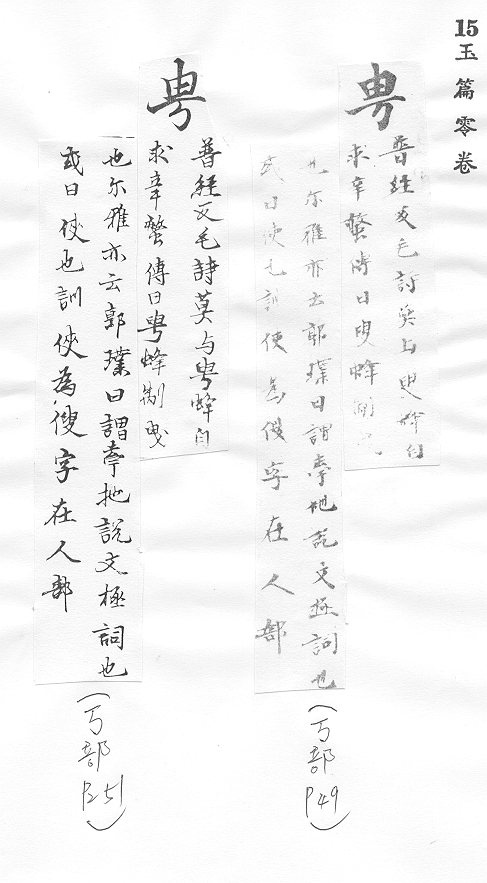 15 玉篇零卷
甹
普經反毛詩莫与甹蜂自
求辛螫傳曰甹蜂
也尓雅亦云郭璞曰謂牽拕説文極詞也
或曰使也訓使為俜字在人部
(丂部 P49)
甹
普經反毛詩莫与甹蜂自
求辛螫傳曰甹蜂掣曳
也尓雅亦云郭璞曰謂牽拕說文極詞也
或曰俠也訓俠為俜字在人部
(丂部 P51)